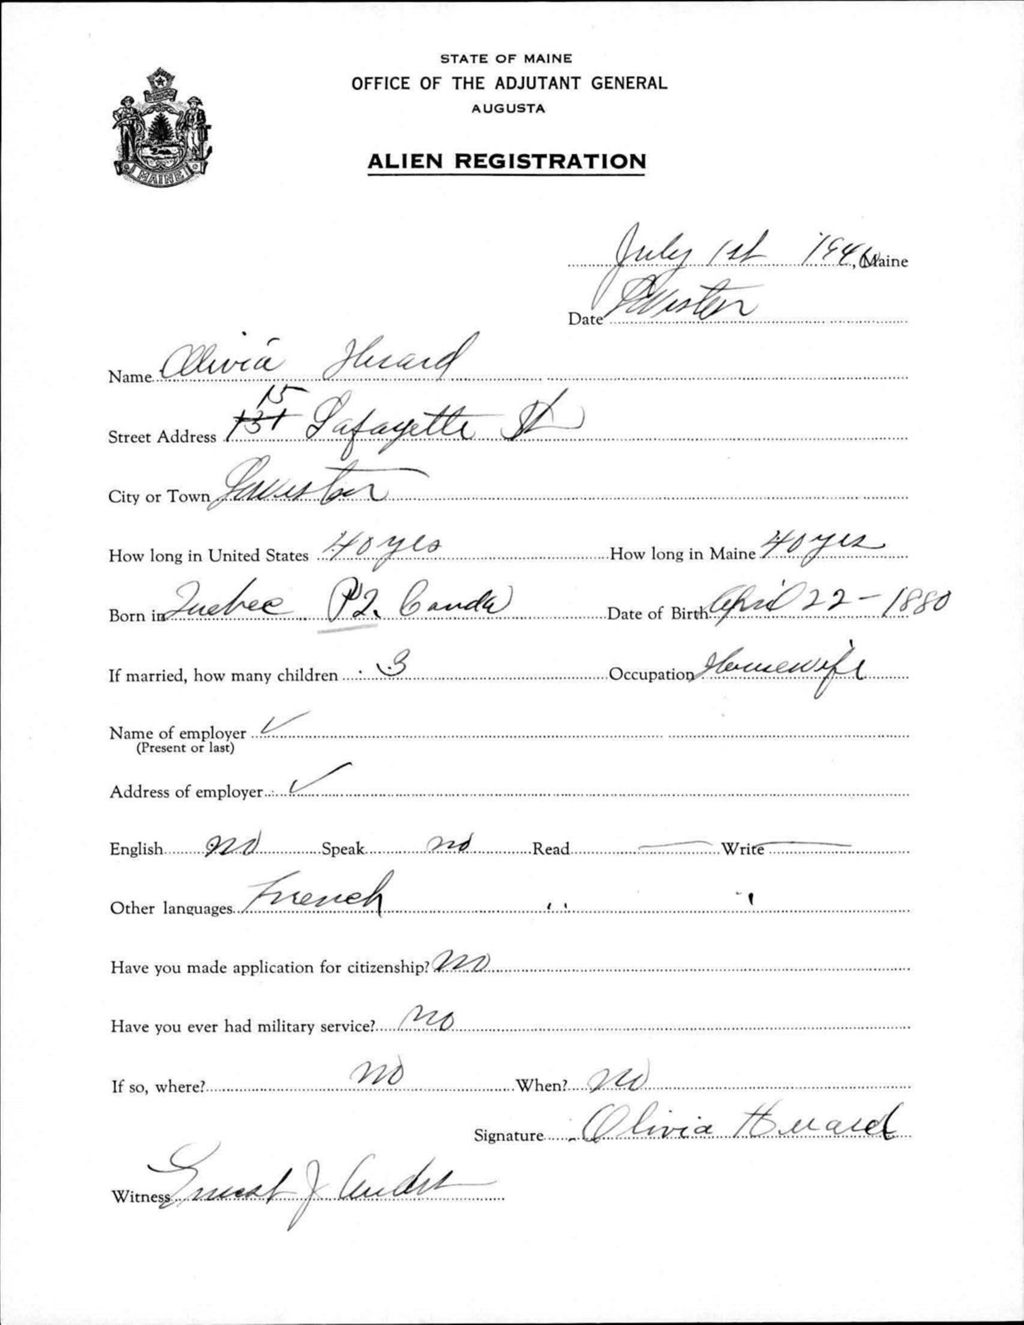 STATE OF MAINE
OFFICE OF THE ADJUTANT GENERAL
AUGUSTA
MAINE
ALIEN REGISTRATION
July 1st 1940, Maine
Date Lewiston
Name Olivia Herard
15
Street Address 131 Lafayette St
City or Town Lewiston
How long in United States 40 yrs How long in Maine 40 yrs
Born in Quebec P.Q. Canda Date of Birth April 22 - 1880
If married, how many children 3 Occupation Housewife
Name of employer ✓
(Present or last)
Address of employer ✓
English no Speak no Read — Write —
Other languages French " "
Have you made application for citizenship? No
Have you ever had military service? No
If so, where? no When? no
Signature Olivia Herard
Witness Ernest J